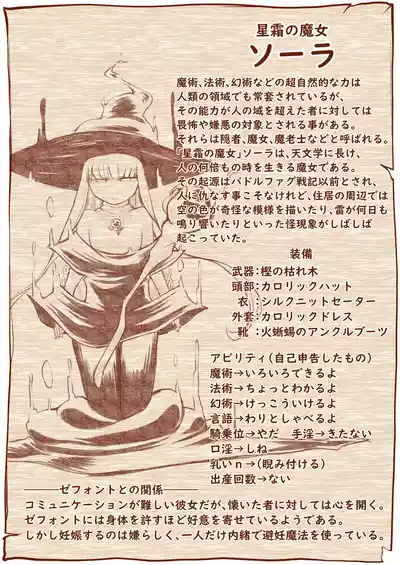 星霜の魔女
ソーラ
魔術、法術、幻術などの超自然的な力は
人類の領域でも常套されているが、
その能力が人の域を超えた者に対しては
畏怖や嫌悪の対象とされる事がある。
それらは隠者、魔女、魔老士などと呼ばれる。
「星霜の魔女」ソーラは、天文学に長け、
人の何倍もの時を生きる魔女である。
その起源はバドルファグ戦記以前とされ、
人に仇なす事こそなけれど、住居の周辺では
空の色が奇怪な模様を描いたり、雷が何日も
鳴り響いたりといった怪現象がしばしば
起こっていた。
装備
武器:樫の枯れ木
頭部:カロリックハット
衣:シルクニットセーター
外套:カロリックドレス
靴:火蜥蜴のアンクルブーツ
アビリティ(自己申告したもの)
魔術→いろいろできるよ
法術→ちょっとわかるよ
幻術→けっこういけるよ
言語→わりとしゃべるよ
騎乗位→やだ 手淫→きたない
口淫→しね
乳いn→(睨み付ける)
出産回数→ない
――ゼフォントとの関係――
コミュニケーションが難しい彼女だが、懐いた者に対しては心を開く。
ゼフォントには身体を許すほど好意を寄せているようである。
しかし妊娠するのは嫌らしく、一人だけ内緒で避妊魔法を使っている。